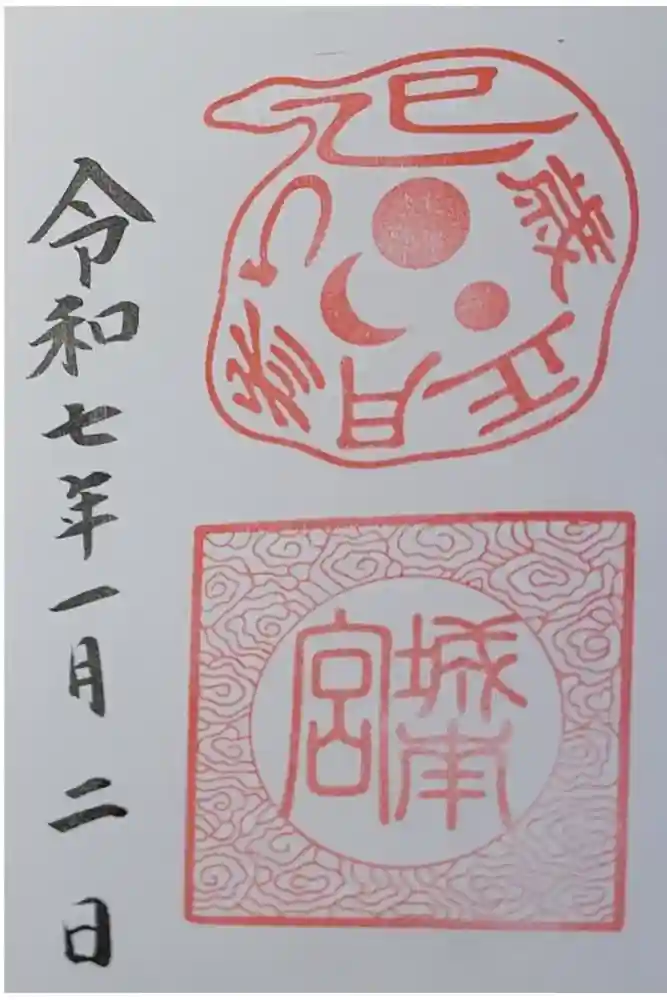 巳歳正月参り
城南宮
令和七年一月二日